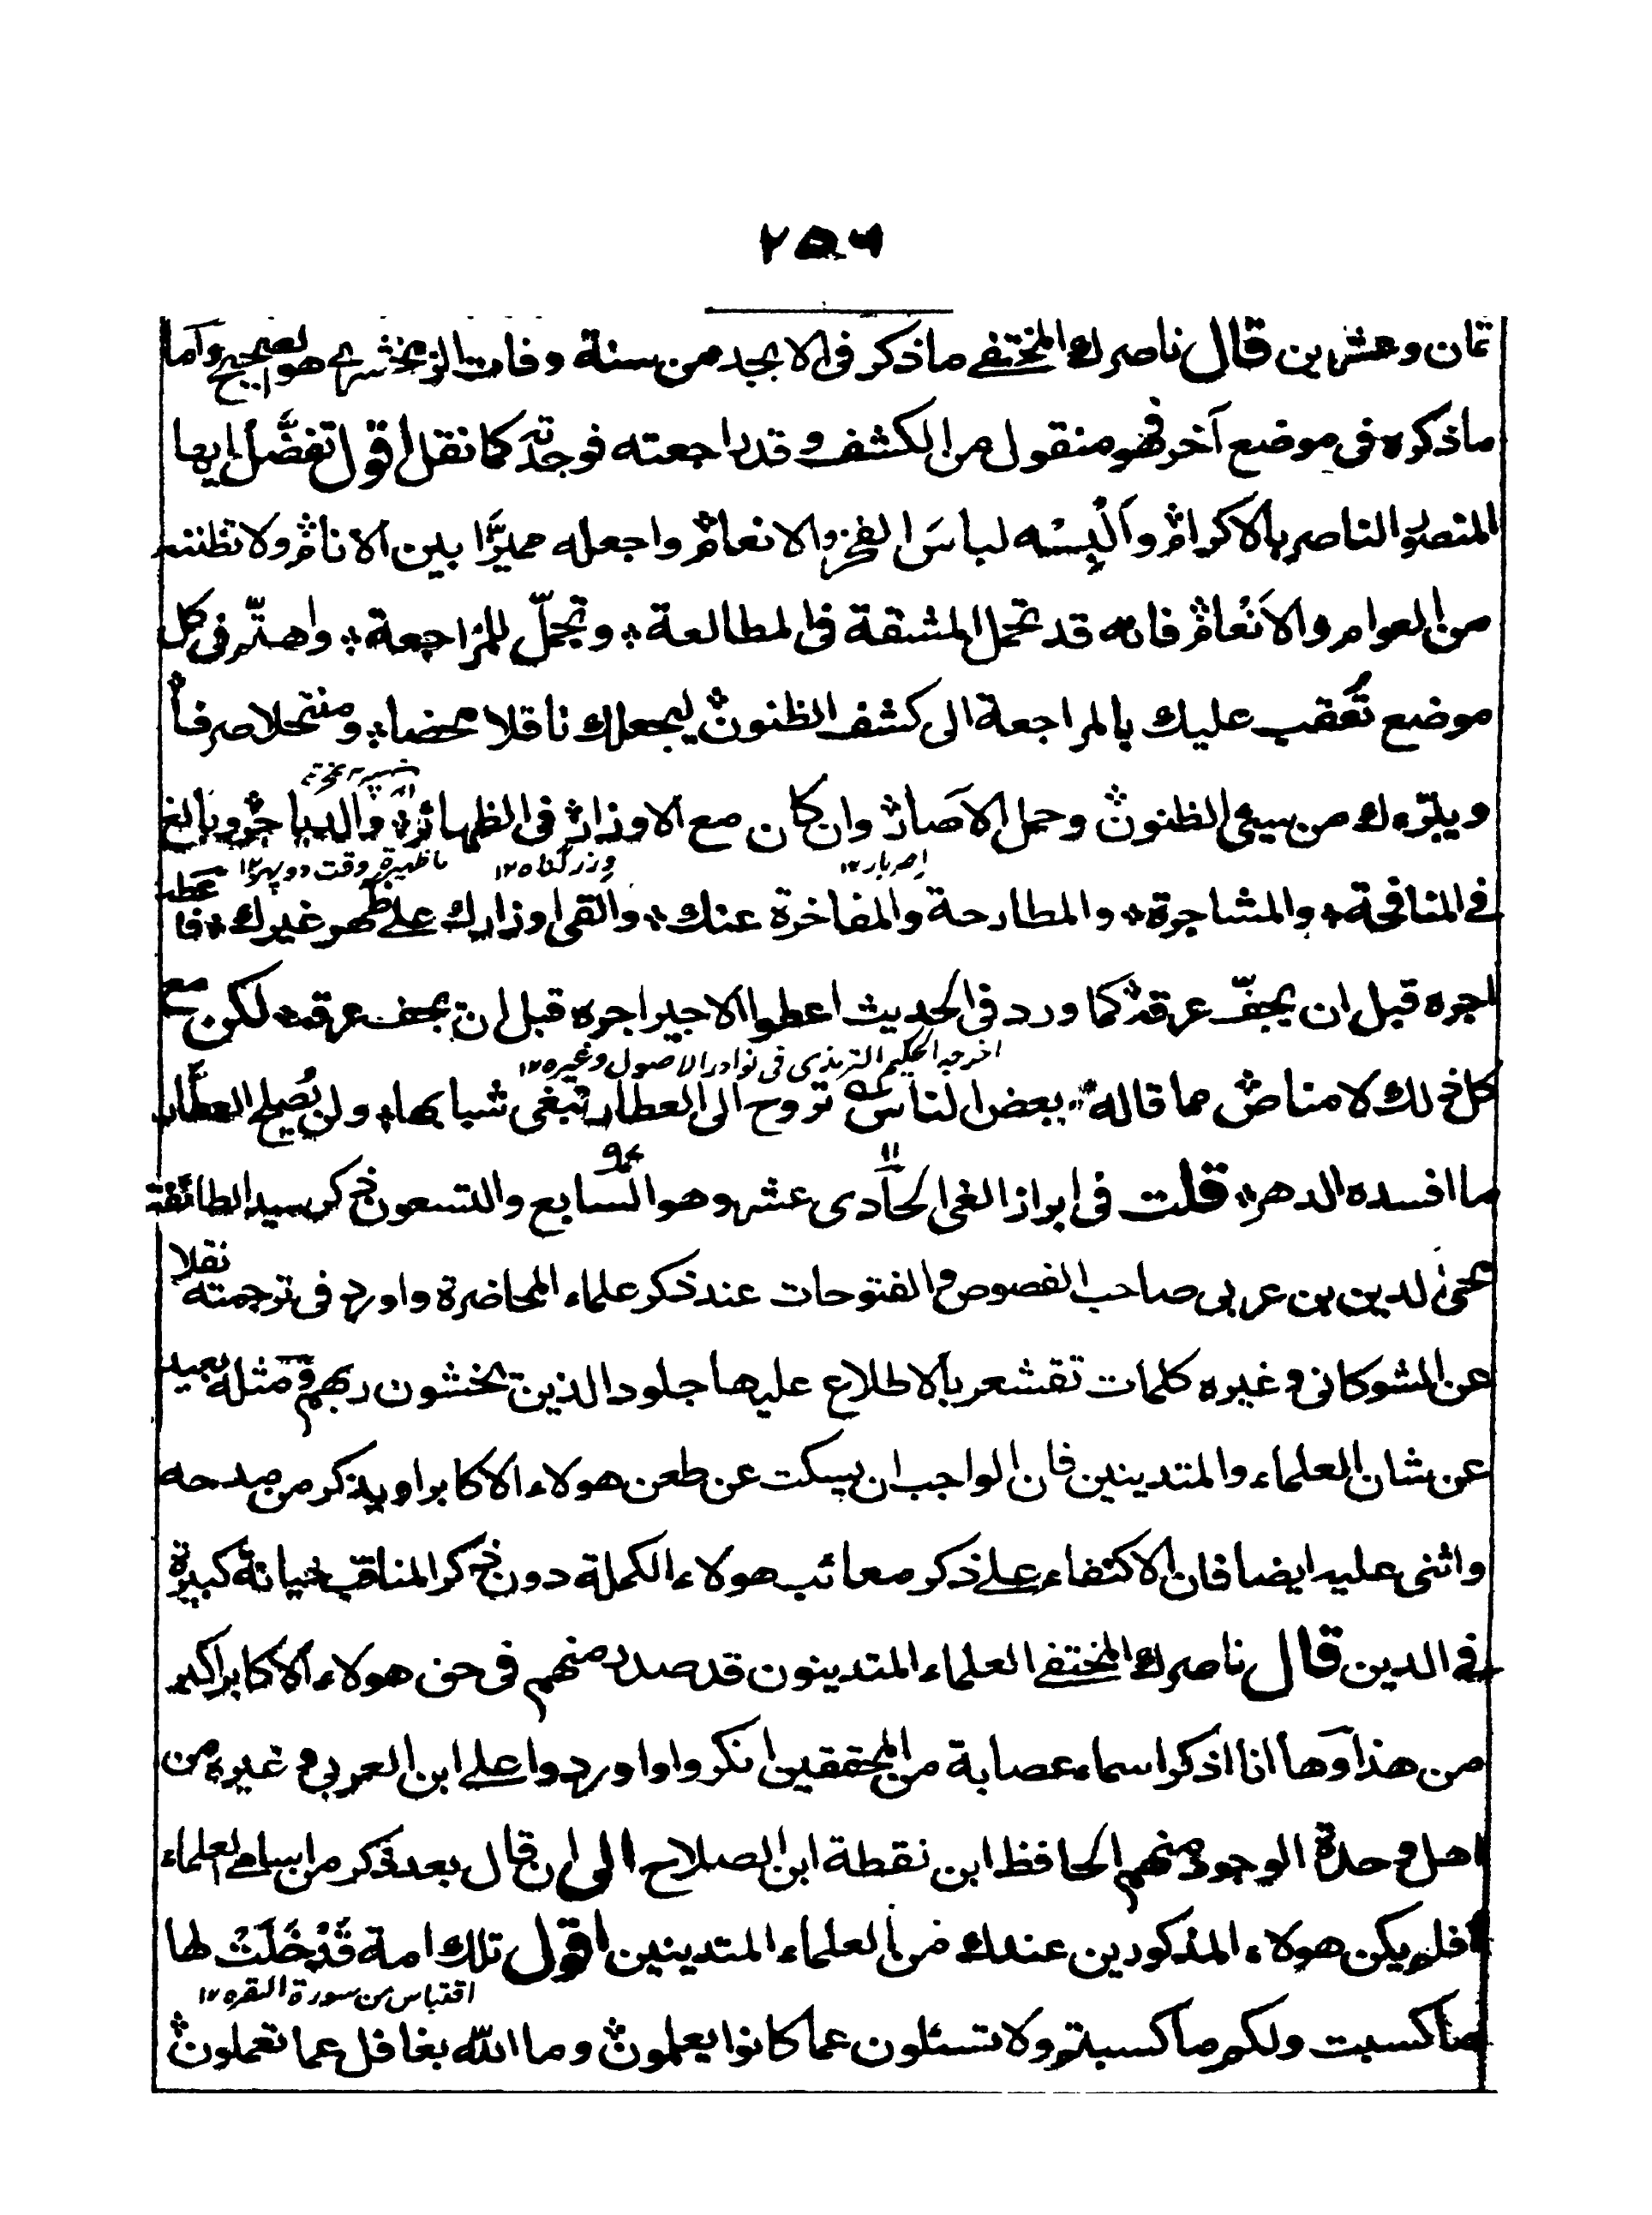 ٢٥٦
ثمان وعشرين قال ناصرك المختفے ماذكر فى الابجد من سنة وفات الزمخشرے هو الصحيح واما
ماذكره فى موضع آخر فهو منقول من الكشف وقد راجعته فوجدته كما نقل اقول تفضَّل ايها
المنصور الناصر بالاكرام وَاَلْبِسْه لباسَ الفخر والانعام واجعله مميزًا بين الانام ولا تظننه
من العوام والاَنْعام فانه قد تحمل المشقة فى المطالعة وتجمّل للمراجعة واهتم فى كل
موضع تُعقب عليك بالمراجعة الى كشف الظنون ليجعلك ناقلا محضا ومنتحلا صرفا
ويبرّءك من سيئ الظنون وحمل الاٰصار وان كان مع الاوزار فى الظهائر والدياجر وبالغ
اصر بار ١٢ وزر گناه ١٢ ظهيرة وقت دوپهر ١٢
فے المنافحة والمشاجرة والمطارحة والمفاخرة عنك والقى اوزارك علے ظهر غيرك فاعطه
اجره قبل ان يجفّ عرقه كما ورد فى الحديث اعطوا الاجير اجره قبل ان يجف عرقه لكن مع
اخرجه الحكيم الترمذى فى نوادر الاصول وغيره ١٢
كل ذلك لا مناص مما قاله بعض الناس تروح الى العطار تبغى شبابها ولن يُصلح العطّار
ما افسده الدهر قلت فى ابراز الغى الحادى عشر وهو السابع والتسعون ذكر سيد الطائفة
١١ ٩٧
محى الدين بن عربى صاحب الفصوص والفتوحات عند ذكر علماء المحاضرة واورد فى ترجمته نقلا
عن الشوكانى وغيره كلمات تقشعر بالاطلاع عليها جلود الذين يخشون ربهم ومثله بعيد
عن شان العلماء والمتدينين فان الواجب ان يسكت عن طعن هولاء الاكابر او يذكر من مدحه
واثنى عليه ايضا فان الاكتفاء علے ذكر معائب هولاء الكملة دون ذكر المناقب خيانة كبيرة
فے الدين قال ناصرك المختفے العلماء المتدينون قد صدر منهم فى حق هولاء الاكابر اكبر
من هذا وها انا اذكر اسماء عصابة من المحققين انكروا واوردوا علے ابن العربى وغيره من
اهل وحدة الوجود منهم الحافظ ابن نقطة ابن الصلاح الى ان قال بعد ذكر من اسامے العلماء
افلم يكن هولاء المذكورين عندك من العلماء المتدينين اقول تلك امة قَدْ خَلَتْ لها
اقتباس من سورة البقره ١٢
ما كسبت ولكم ما كسبتم ولا تسئلون عما كانوا يعملون وما الله بغافل عما تعملون